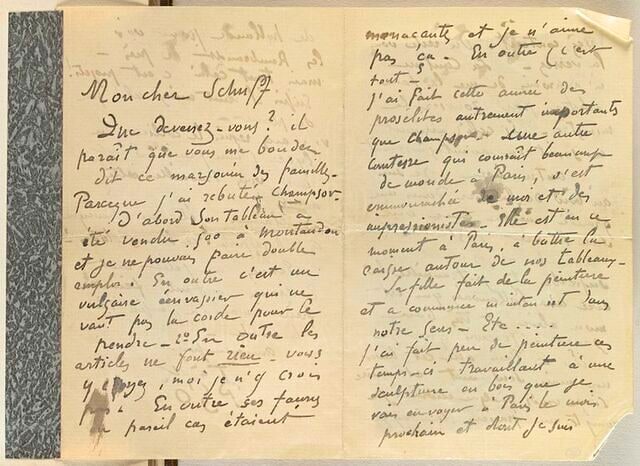 Mon cher Schuff
Que devenez-vous? il
paraît que vous me boudez
dit ce marsouin des familles.
Parceque j'ai rebuté Champsor.
D'abord Son tableau a
été vendu 500 à Montandon
et je ne pouvais faire double
emploi. En outre c'est un
vulgaire écrivassier qui ne
vaut pas la corde pour le
pendre - 2° En outre les
articles ne font rien - vous
y croyez, moi je n'y crois
pas. En outre ses façons
en pareil cas étaient
menaçante et je n'aime
pas ça. En outre (c'est
tout -
j'ai fait cette année des
proselites autrement importants
que Champs - Une autre
Comtesse qui connaît beaucoup
de monde à Paris, s'est
emmourachée de moi et des
impressionistes - Elle est en ce
moment à Paris, à battre la
caisse autour de nos tableaux -
Sa fille fait de la peinture
et a commencé maintenant dans
notre sens - Etc .....
J'ai fait peu de peinture ces
temps-ci travaillant à une
sculpture en bois que je
vais envoyer à Paris le mois
prochain et dont je suis